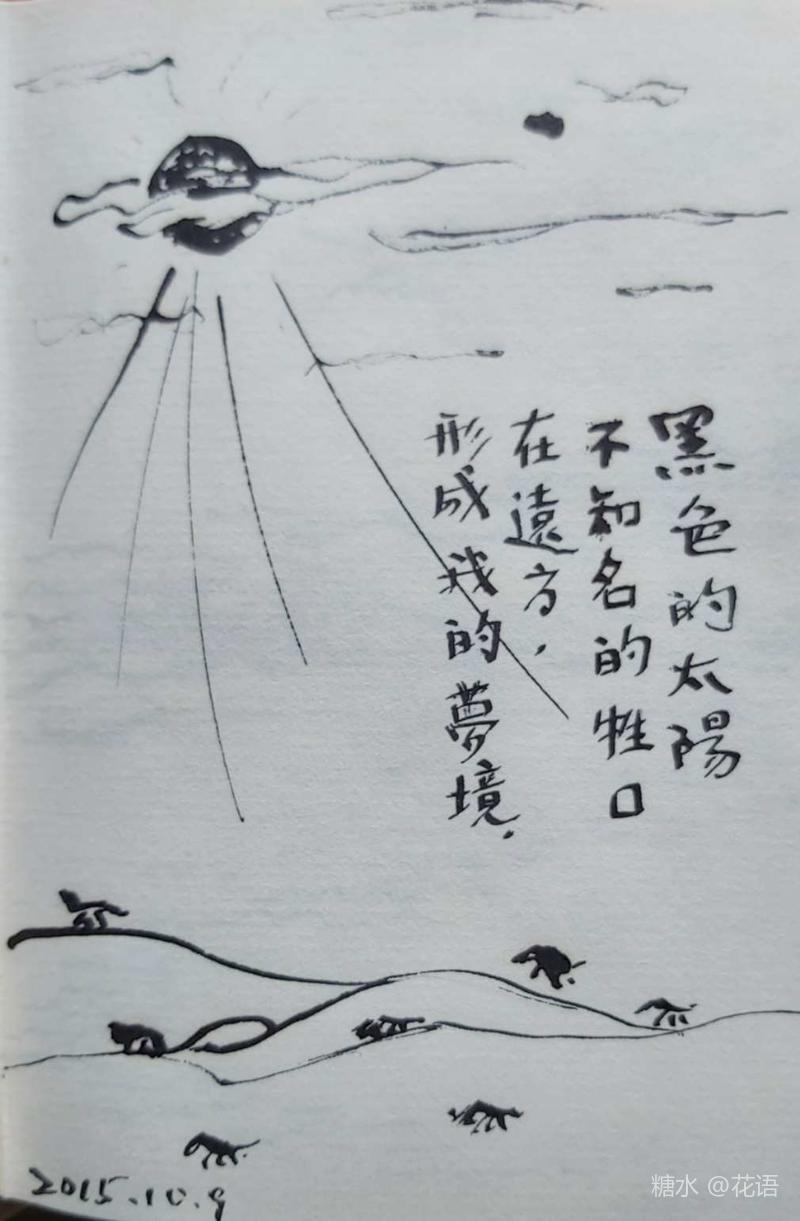 黑色的太陽
不知名的牲口
在遠方，
形成我的夢境．
2015.10.9
糖水 @花语